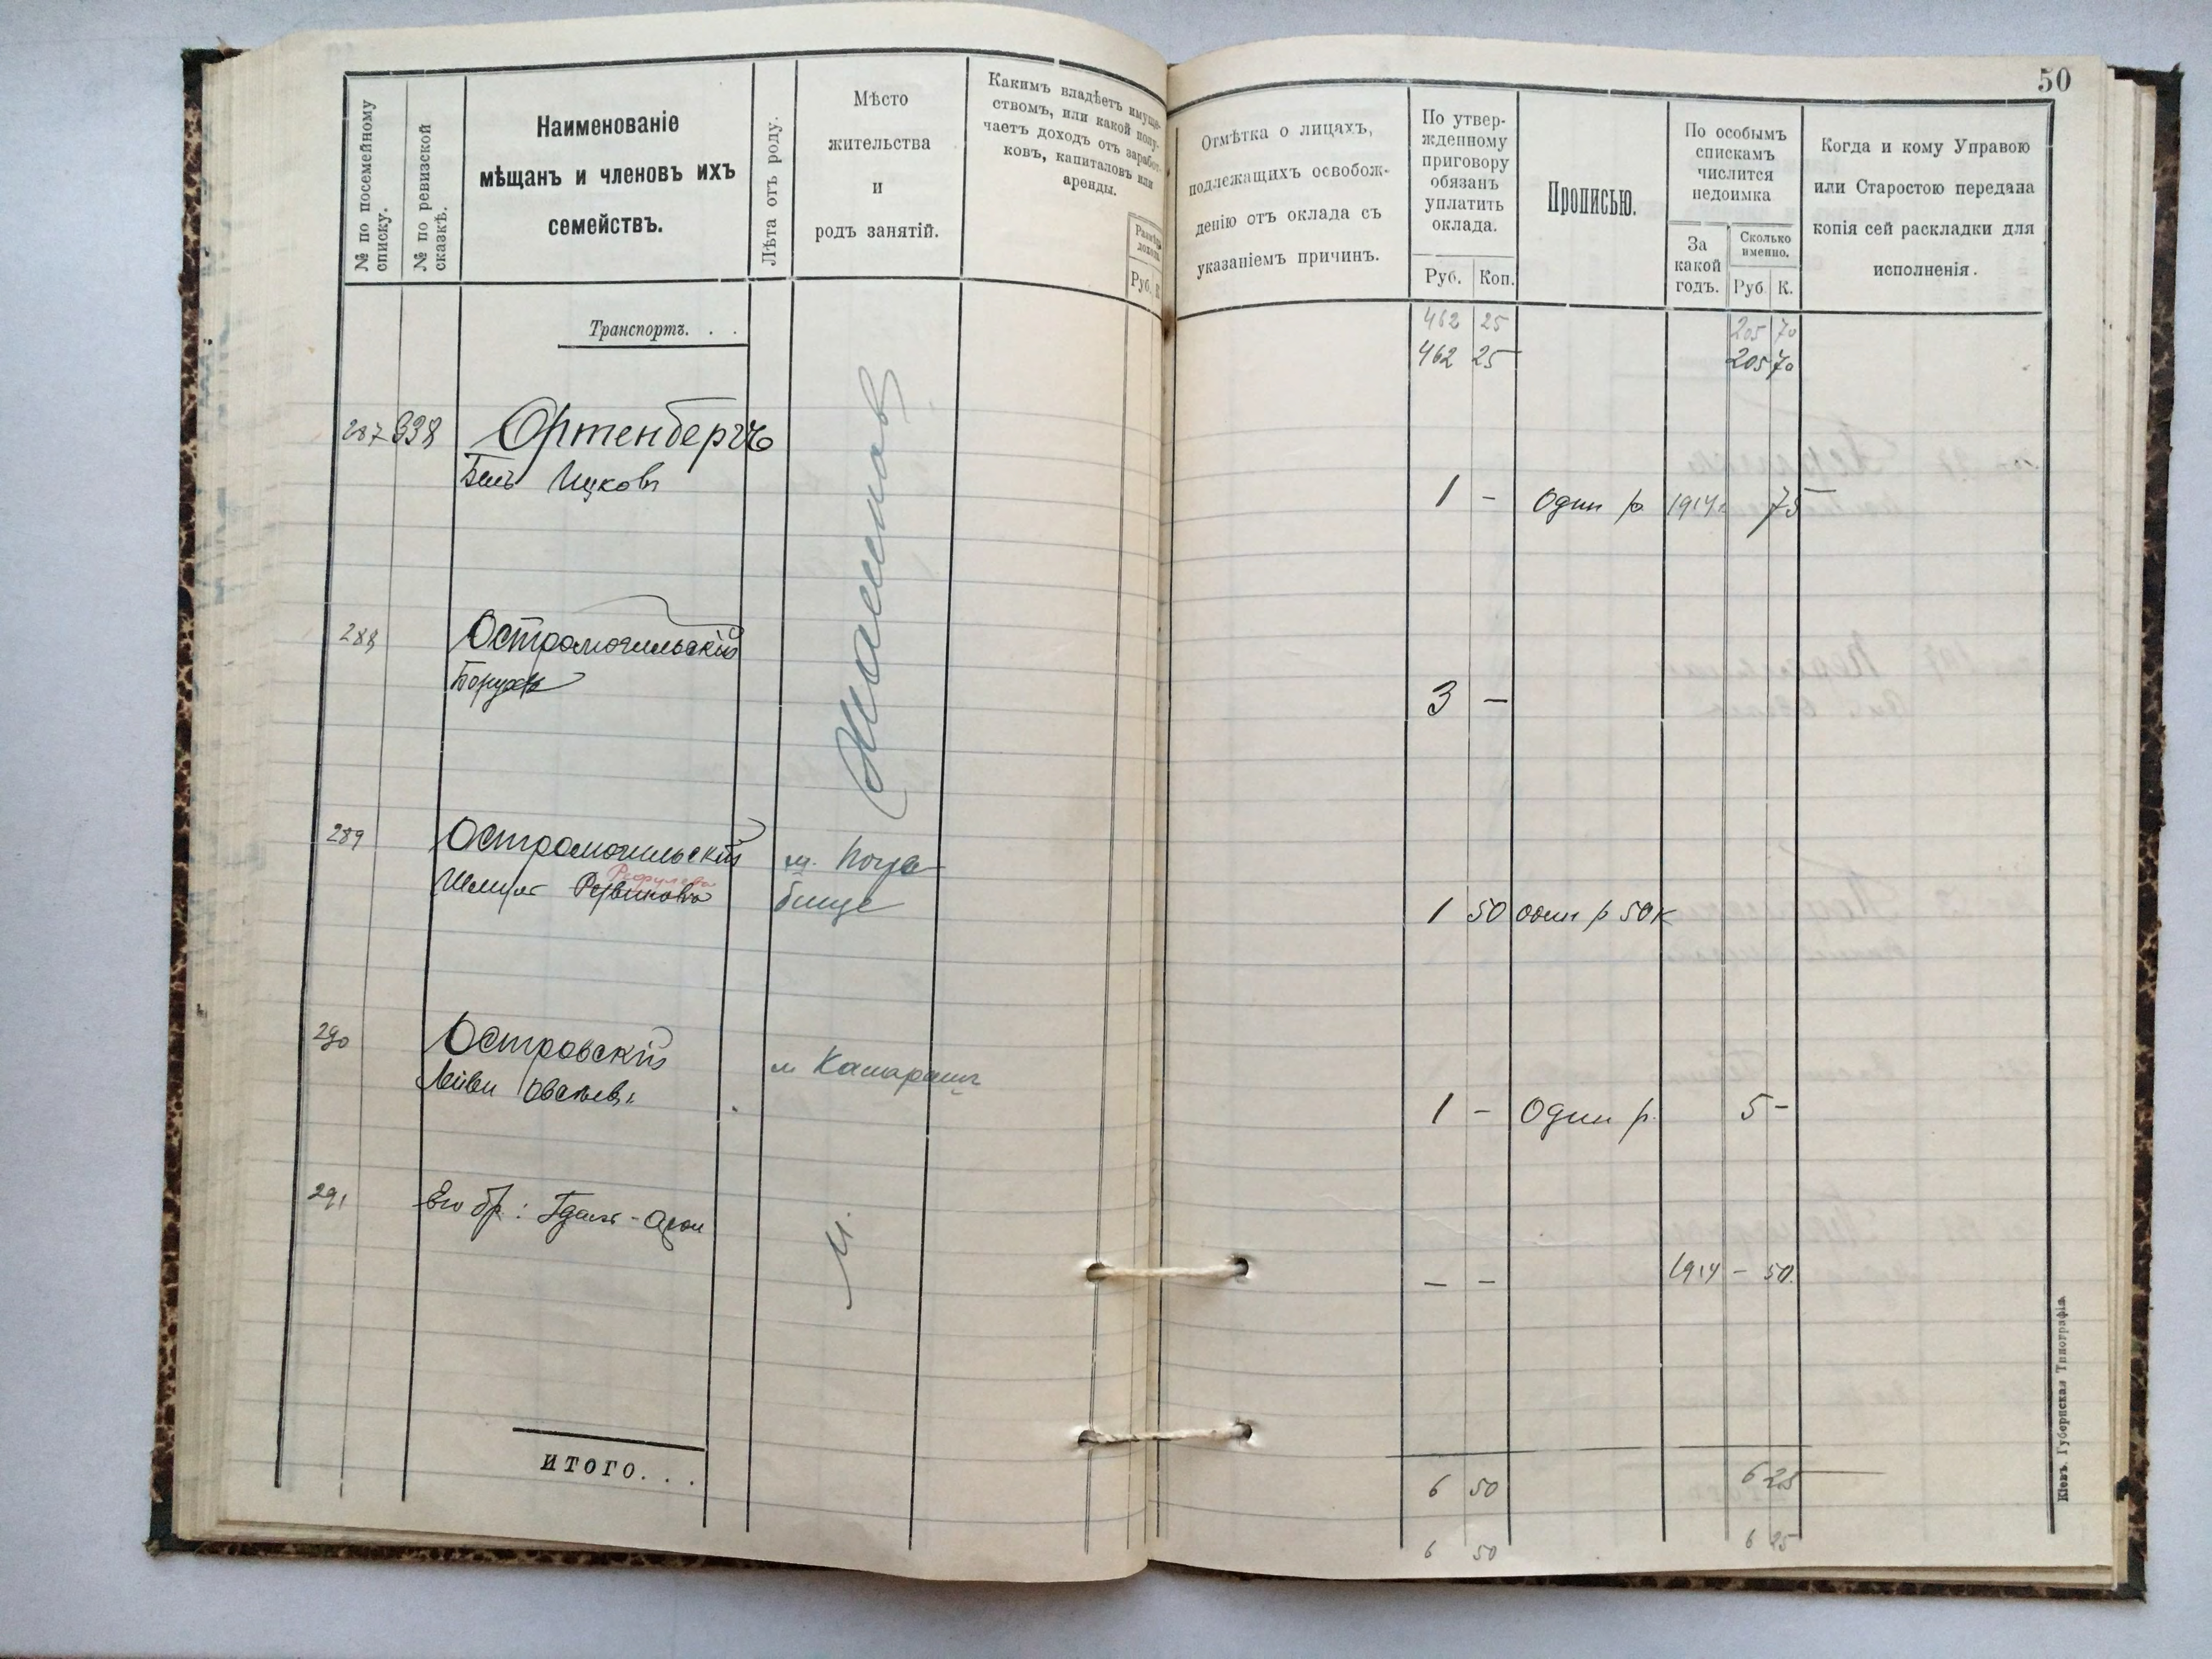 50
№ по посемейному списку.
№ по ревизской сказкѣ.
Наименованіе
мѣщанъ и членовъ ихъ
семействъ.
Лѣта отъ роду.
Мѣсто
жительства
и
родъ занятій.
Какимъ владѣетъ имуще-
ствомъ, или какой полу-
чаетъ доходъ отъ заработ-
ковъ, капиталовъ или
аренды.
Руб. К.
Отмѣтка о лицахъ,
подлежащихъ освобож-
денію отъ оклада съ
указаніемъ причинъ.
По утвер-
жденному
приговору
обязанъ
уплатить
оклада.
Руб. Коп.
Прописью.
По особымъ
спискамъ
числится
недоимка
За
какой
годъ.
Сколько
именно.
Руб К.
Когда и кому Управою
или Старостою передана
копія сей раскладки для
исполненія.
Транспортъ. . .
462 25 205 70
462 25 205 70
287 938 Ортенбергъ
1 - Один р 1914 75
288 Остромогильскій
Борухъ
3 -
289 Остромогильскій м. Пога
бище
1 50 один р 50 к
290 Островскій
м
1 - Один р. 5 -
291 Его бр:
М.
- - 1914 - 50.
ИТОГО. . .
6 50 6 25
6 50 6 25
Кіевъ. Губернская Типографія.